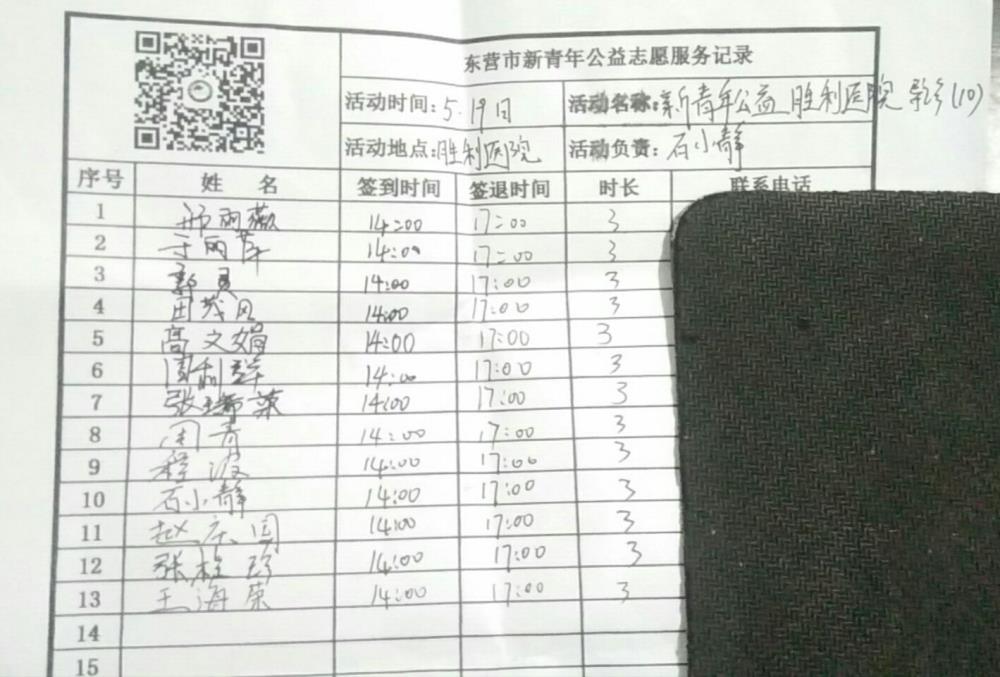 东营市新青年公益志愿服务记录
活动时间:5.19日 活动名称:新青年公益 胜利医院 (10)
活动地点:胜利医院 活动负责:石小静
序号 姓 名 签到时间 签退时间 时长 联系电话
1 邢丽薇 14:00 17:00 3
2 于丽萍 14:00 17:00 3
3 14:00 17:00 3
4 田茂风 14:00 17:00 3
5 高文娟 14:00 17:00 3
6 周利群 14:00 17:00 3
7 张瑞荣 14:00 17:00 3
8 周青 14:00 17:00 3
9 程波 14:00 17:00 3
10 石小静 14:00 17:00 3
11 赵庆国 14:00 17:00 3
12 张桂珍 14:00 17:00 3
13 王海荣 14:00 17:00 3
14
15